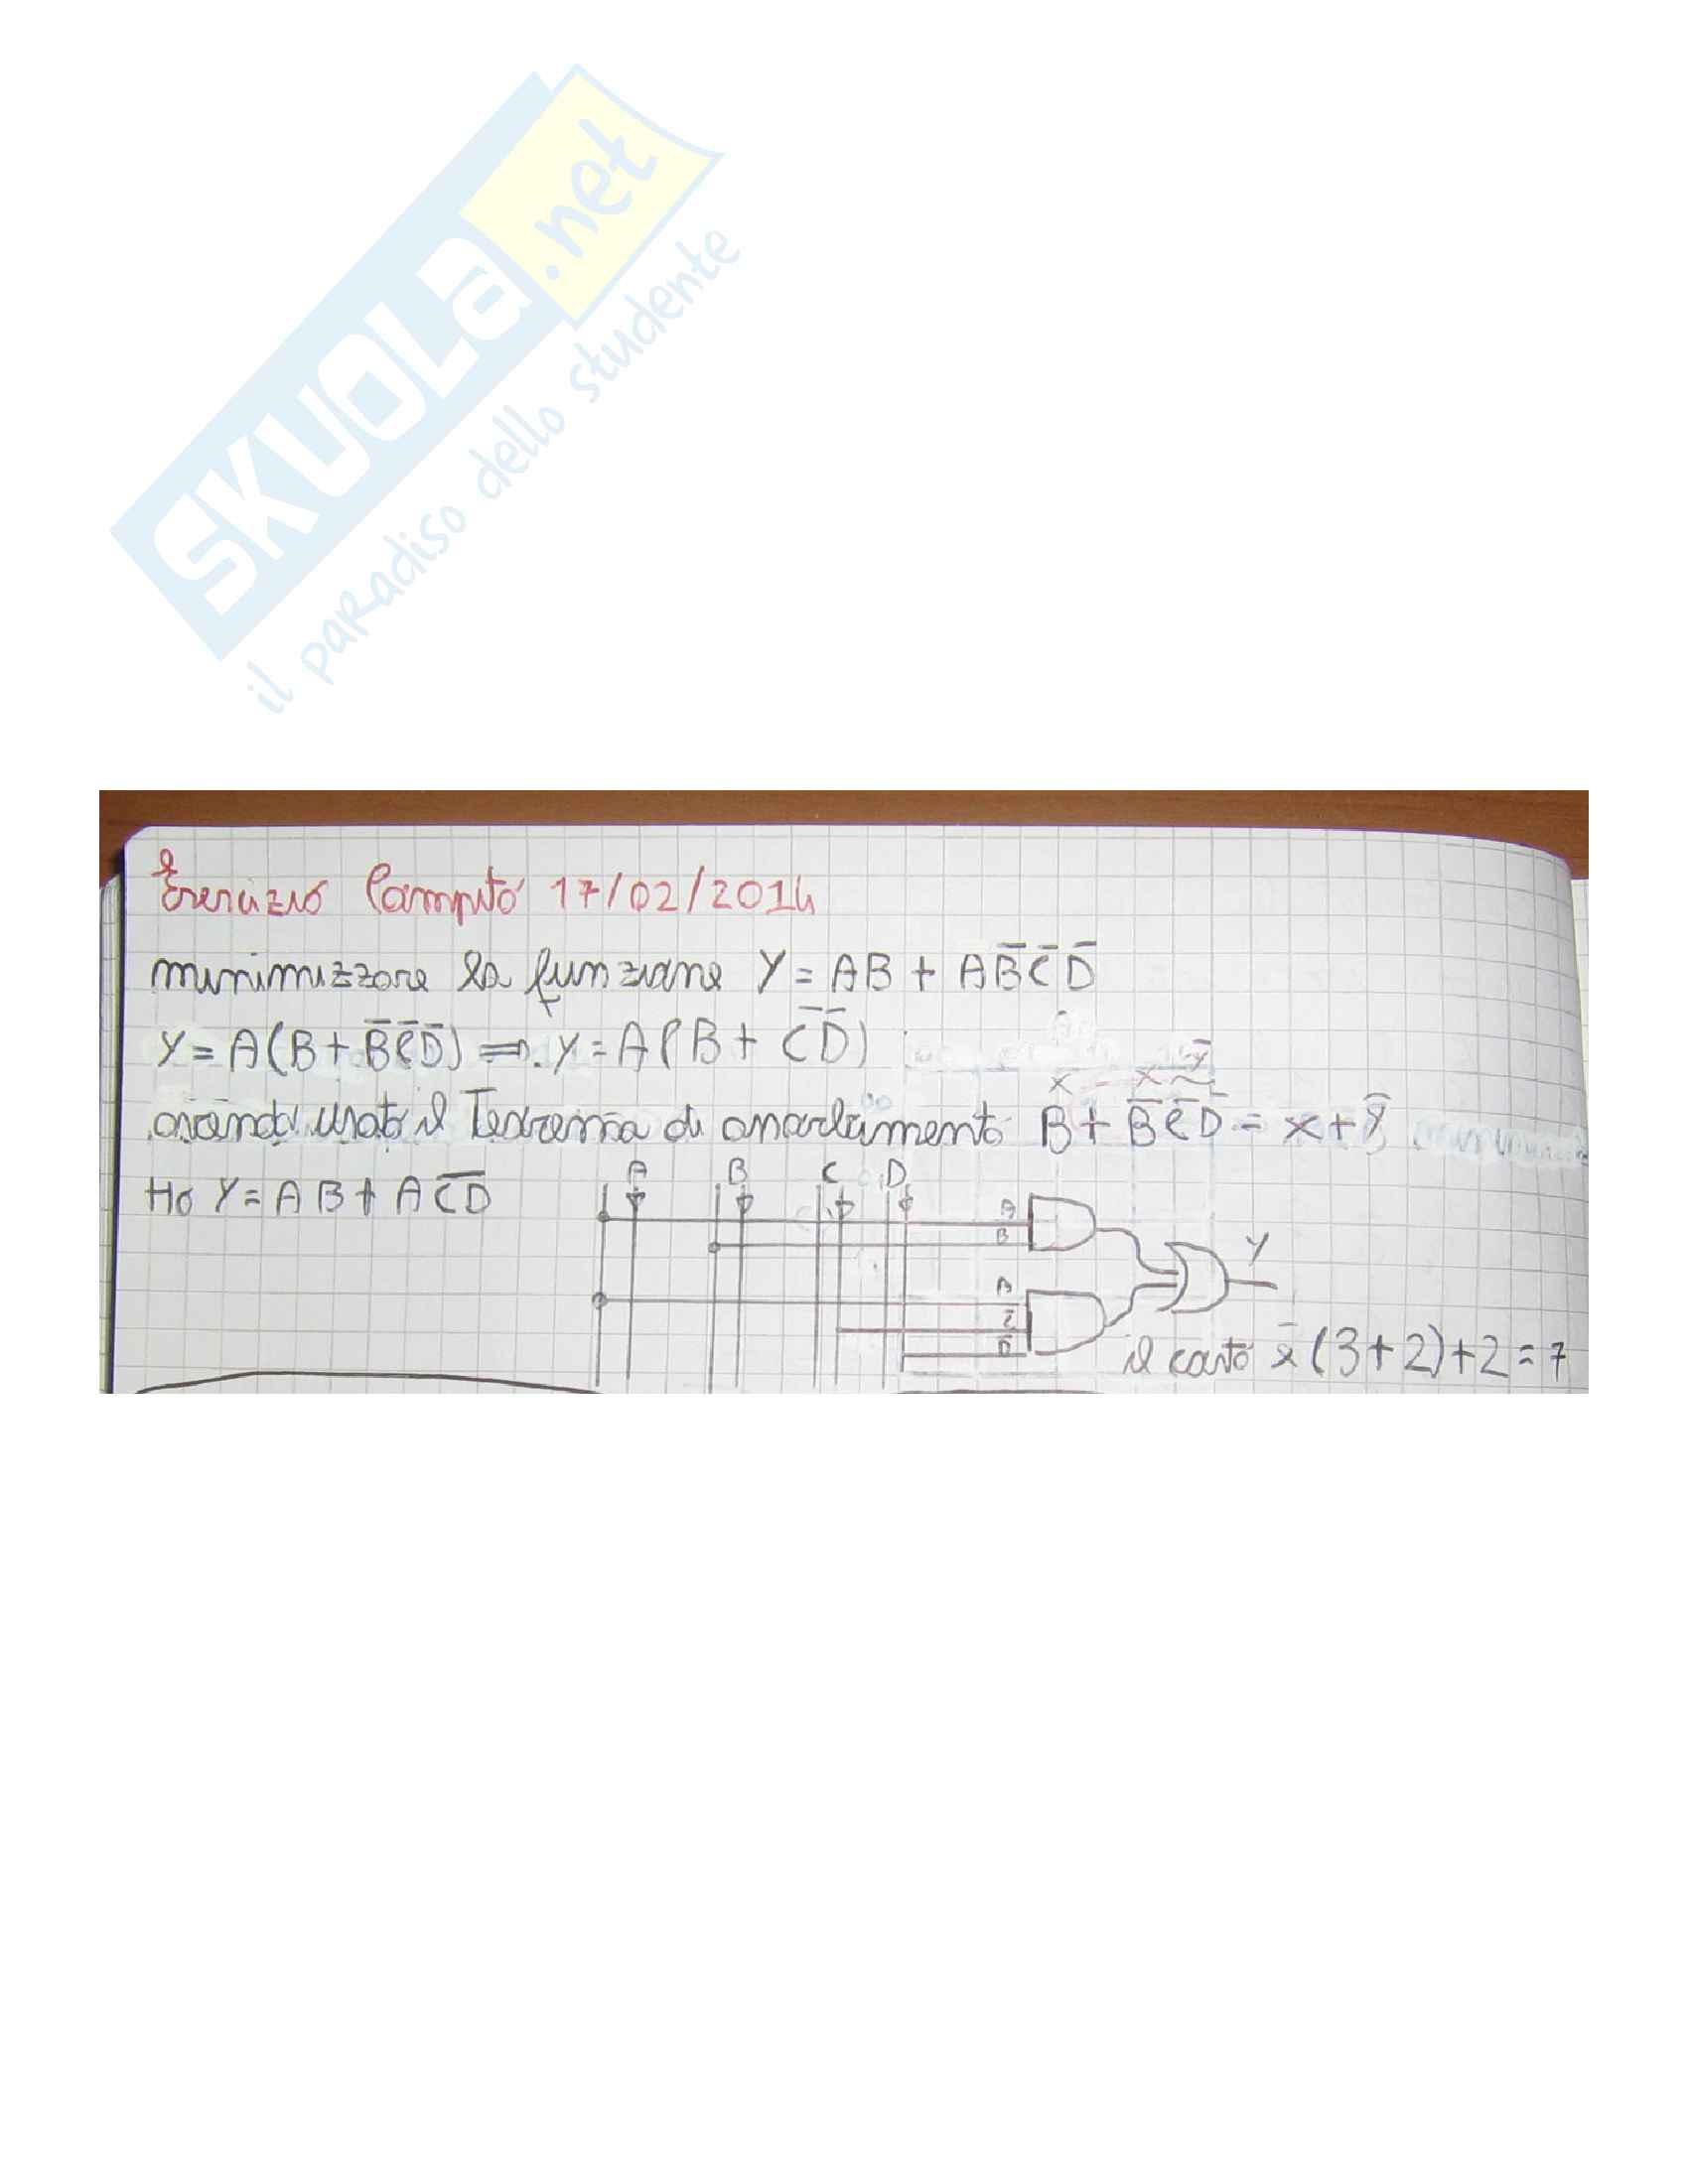 SKUOLa.net
il paradiso dello studente
Esercizio Compito 17/02/2014
minimizzare la funzione Y = AB + AB̅C̅D̅
Y = A(B + B̅C̅D̅) ⟹ . Y = A(B + C̅D̅)
x x̅ y̅
avendo usato il Teorema di B + B̅C̅D̅ = x + y̅
Ho Y = AB + AC̅D̅
A B C D
A
B
Y
A
C̅
D̅
il costo è (3+2)+2=7